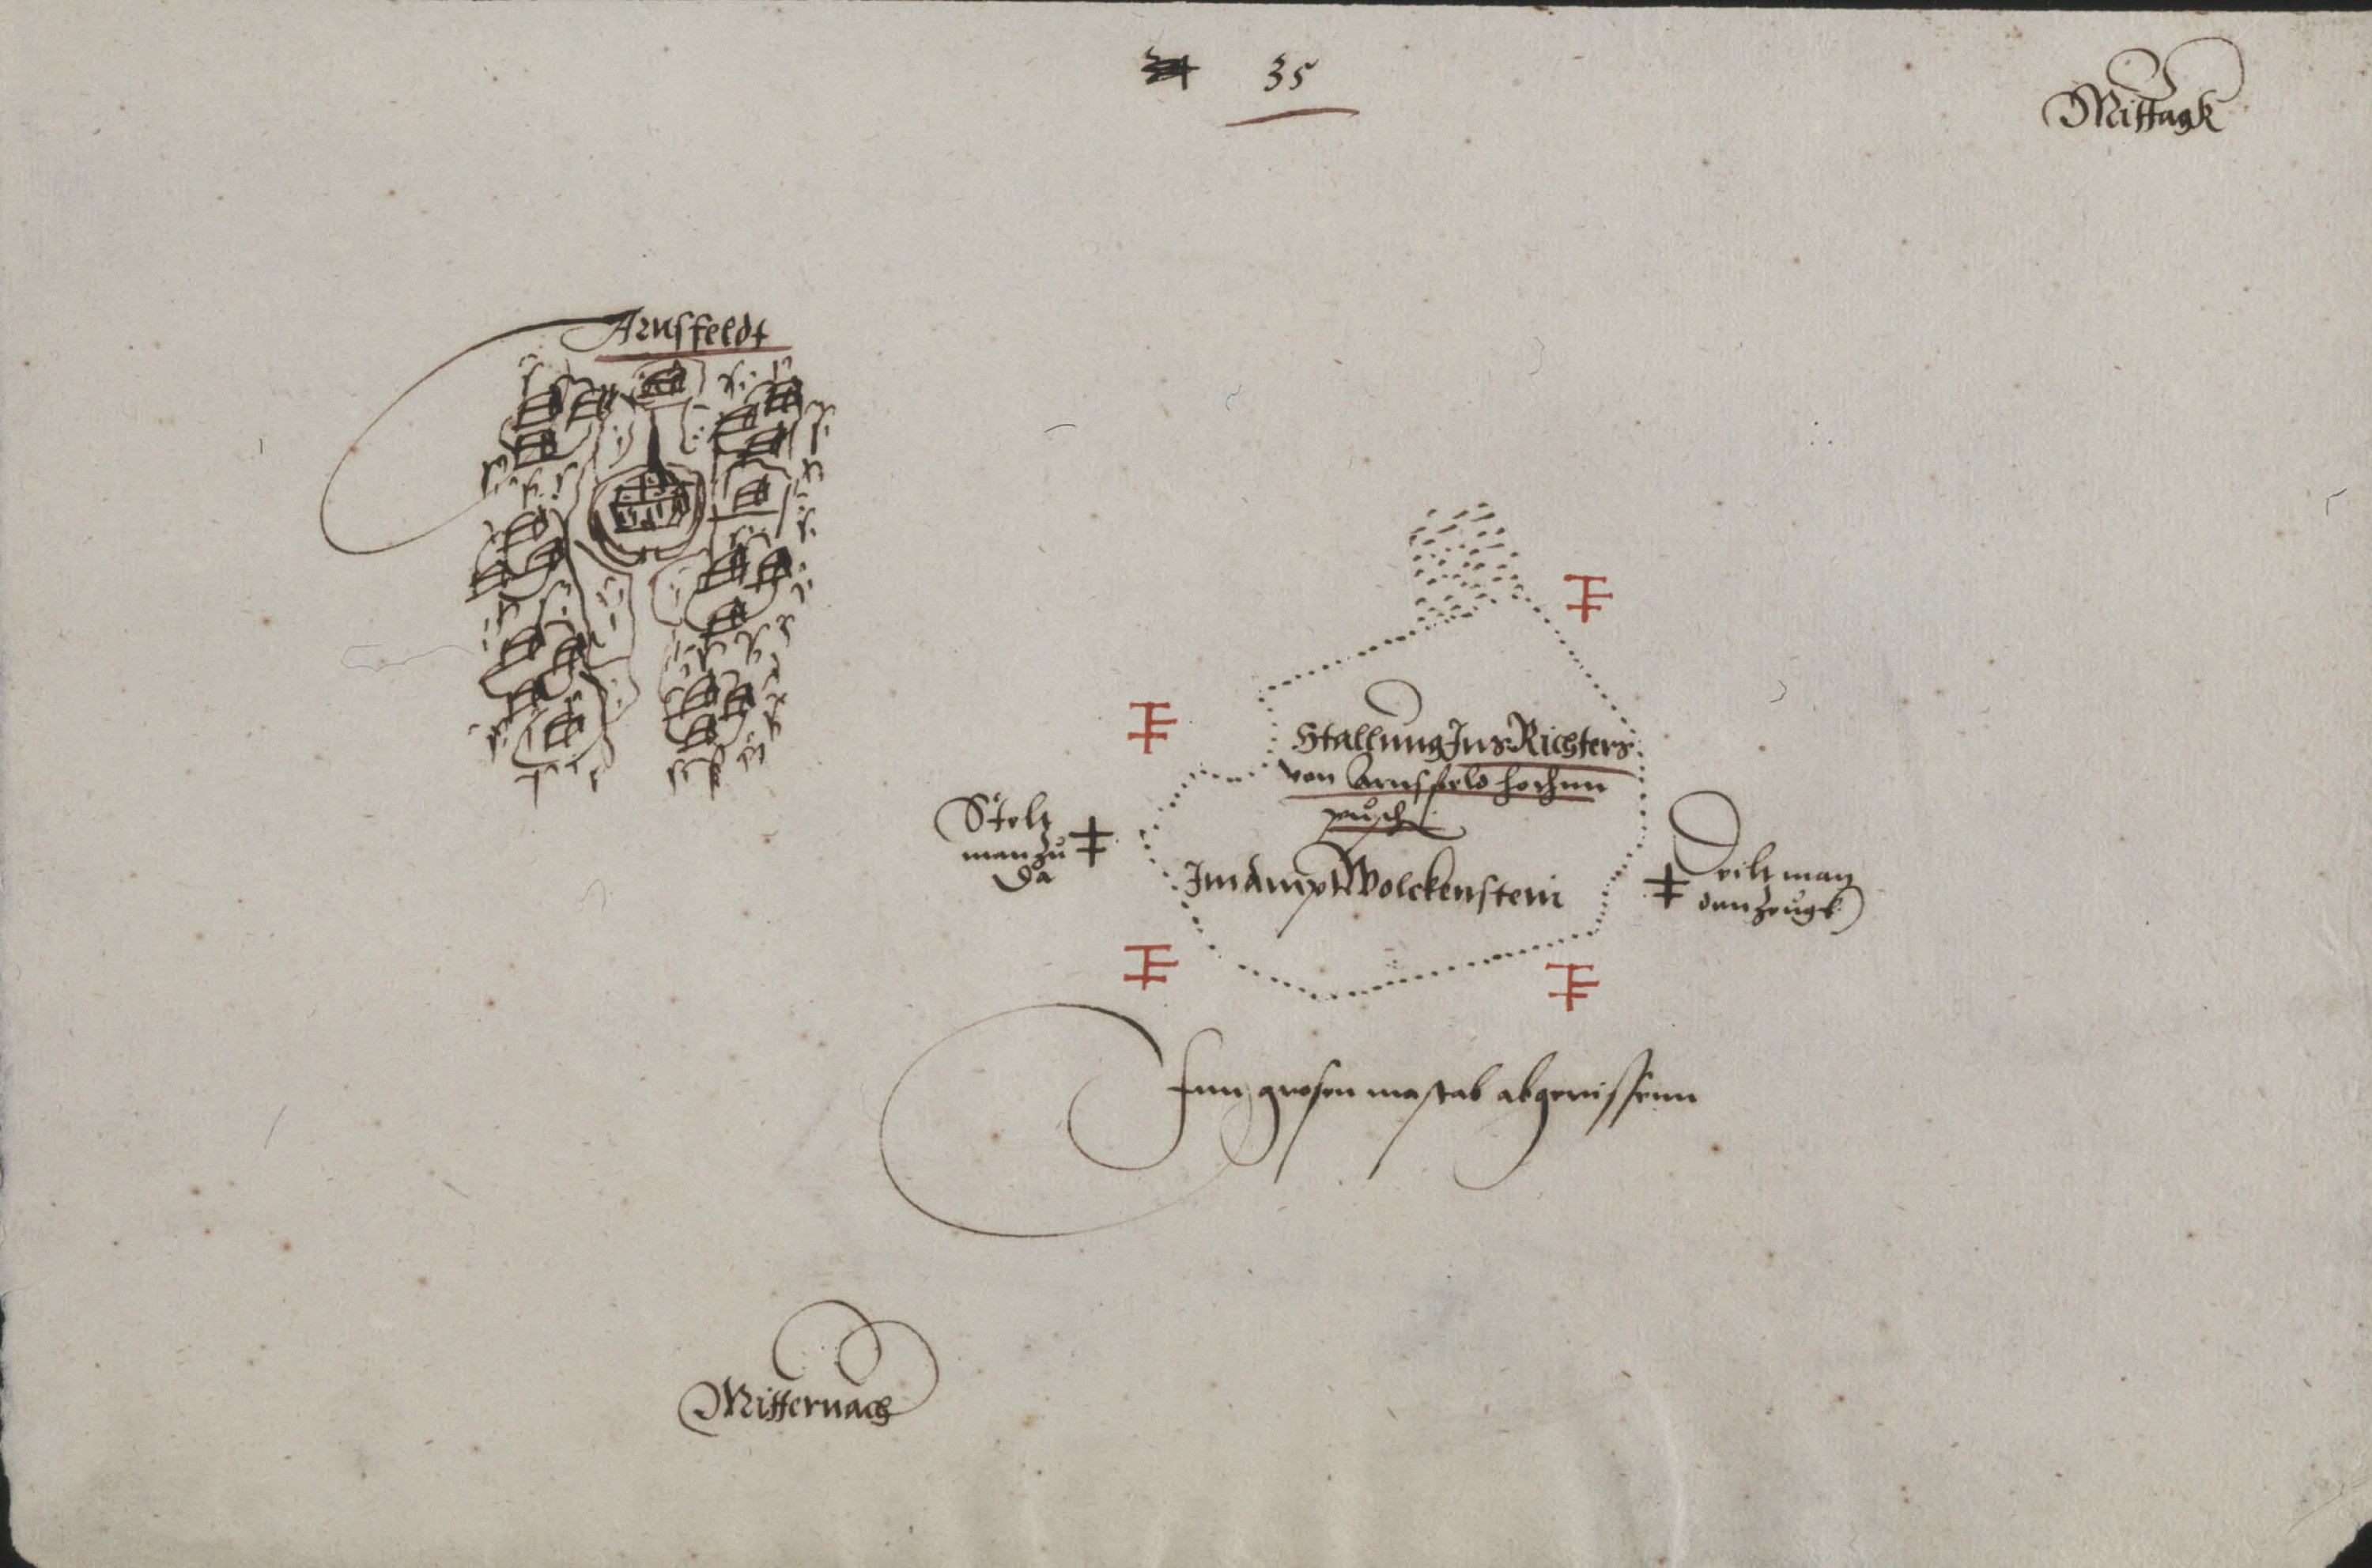 35
Mittagk
Arnsfeldt
Stallung Ins Richters
von Arnsfeld hochnn
pusch
Im Ampt Wolckenstein
Stelt
man zu
da
Teilt man
den zeugk
Inn grosen mastab abgerissenn
Mitternach